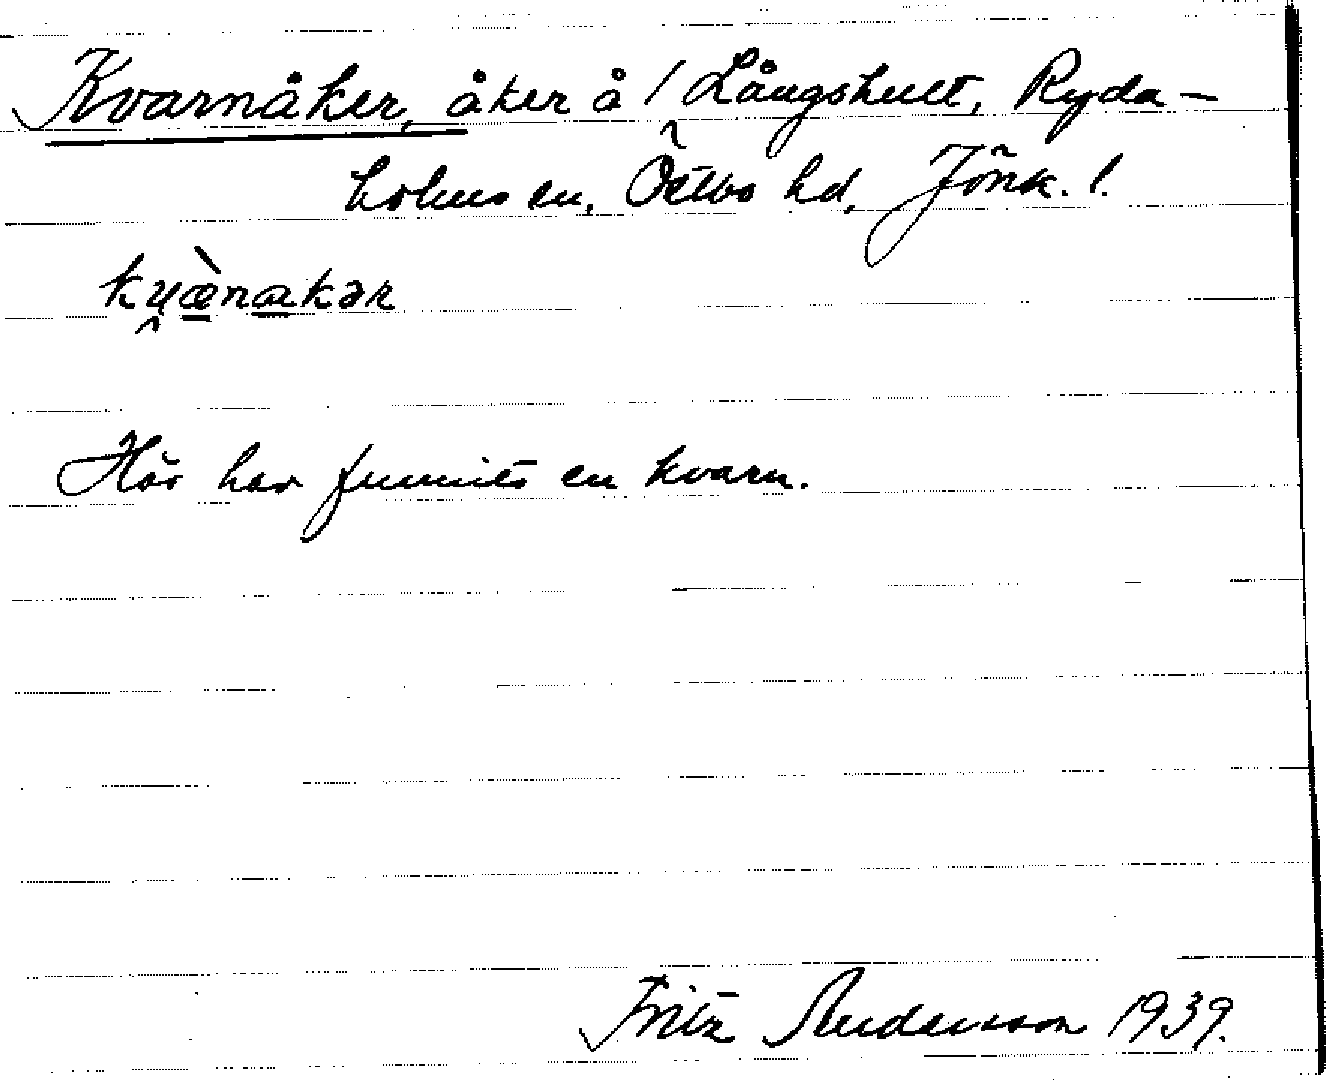 Kvarnåker, åker å 1 Långshult, Ryda-
holms sn, Östbo hd, Jönk. l.
ku̯æ̀nakər
Här har funnits en kvarn.
Fritz Andersson 1939.